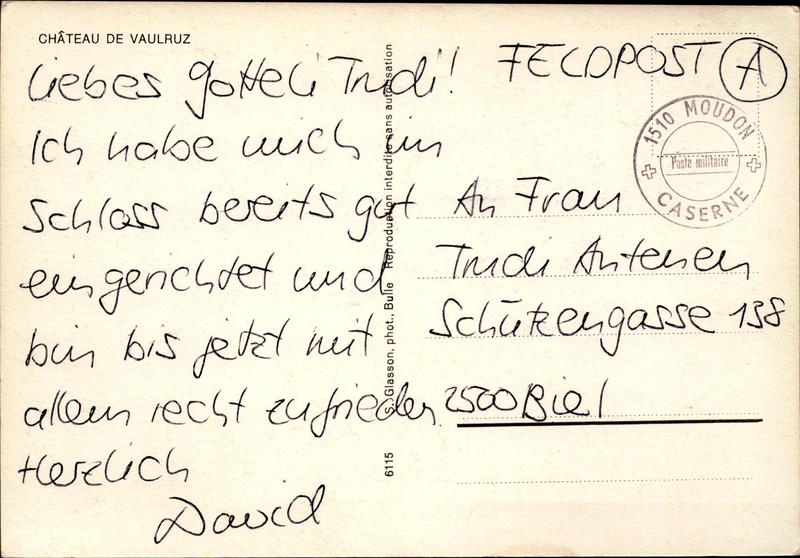 CHÂTEAU DE VAULRUZ
Liebes Gotteli Trudi!
Ich habe mich im
Schloss bereits gut
eingerichtet und
bin bis jetzt mit
allem recht zufrieden.
Herzlich
David
S. Glasson, phot., Bulle Reproduction interdite sans autorisation
6115
FELDPOST A
1510 MOUDON
Poste militaire
CASERNE
An Frau
Trudi Antenen
Schützengasse 138
2500 Biel